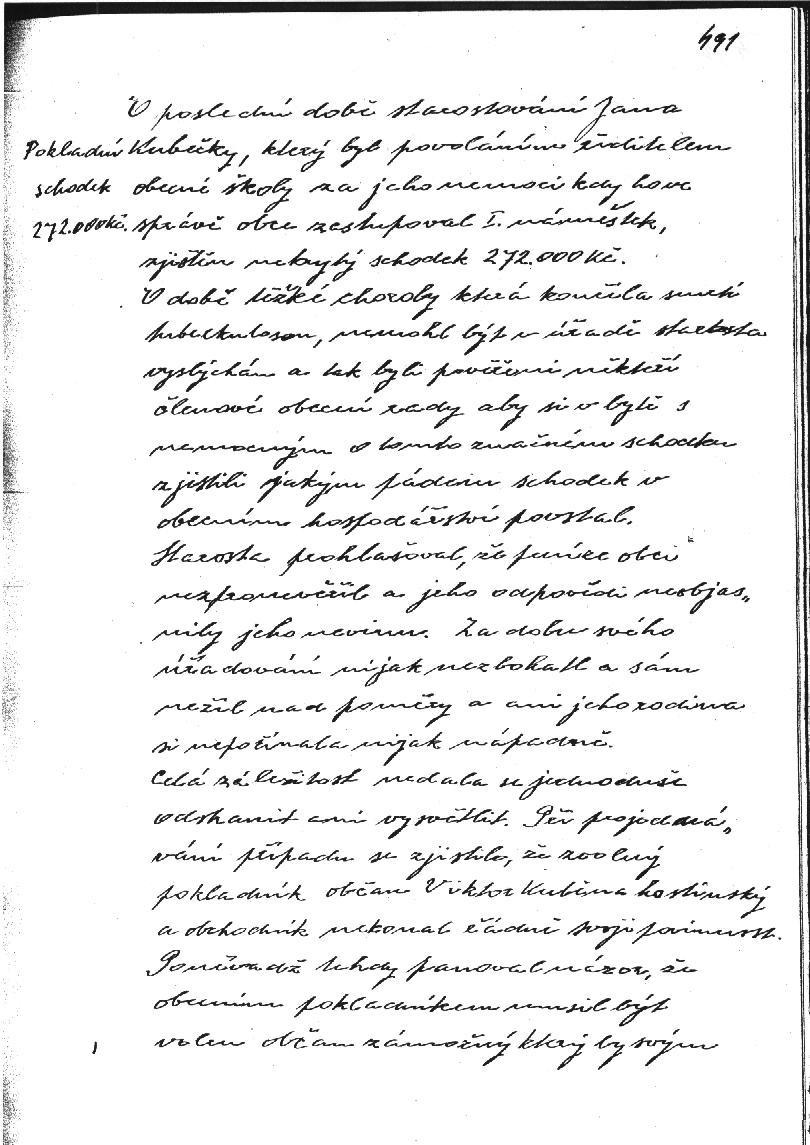 491
V poslední době starostování Jana
Pokladní Kubečky, který byl povoláním řiditelem
schodek obecné školy za jeho nemoci kdy ho ve
272.000Kč. správě obce zastupoval I. náměstek,
zjištěn nekrytý schodek 272.000 Kč.
V době těžké choroby která končila smrtí
tuberkulosou, nemohl být v úřadě starosta
vyslýchán a tak byli pověřeni někteří
členové obecní rady aby si v bytě s
nemocným o tomto značném schodku
zjistili jakým pádem schodek v
obecním hospodářství povstal.
Starosta prohlašoval, že peníze obci
nezpronevěřil a jeho odpovědi neobjas„
nily jeho nevinu. Za dobu svého
úřadování nijak nezbohatl a sám
nežil nad poměry a ani jeho rodina
si nepočínala nijak nápadně.
Celá záležitost nedala se jednoduše
odstranit ani vysvětlit. Při projedná„
vání případu se zjistilo, že zvolený
pokladník občan Viktor Kuběna hostinský
a obchodník nekonal řádně svoji povinnost.
Poněvadž tehdy panoval názor, že
obecním pokladníkem musil být
volen občan zámožný který by svým